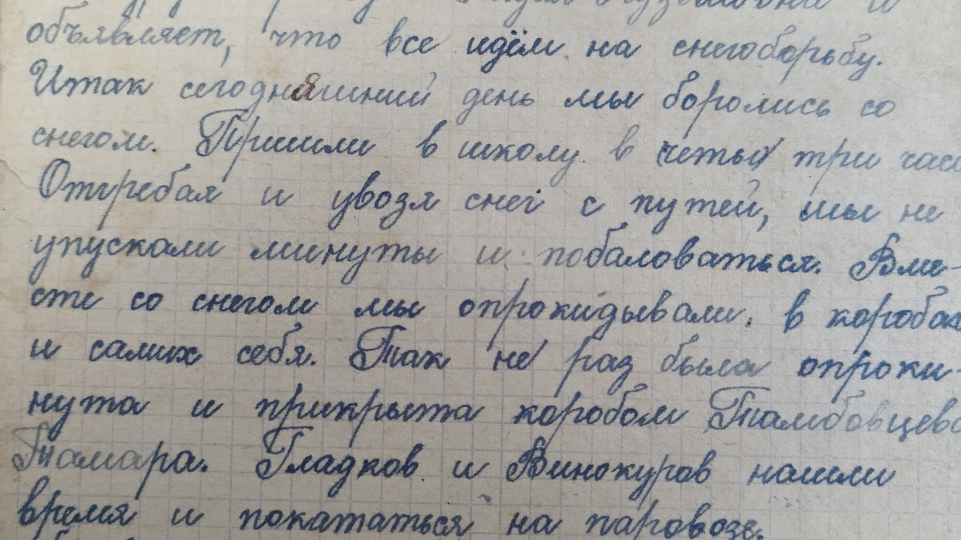 объявляет, что все идём на снегоборьбу.
Итак сегодняшний день мы боролись со
снегом. Пришли в школу в четы три часа
Отгребая и увозя снег с путей, мы не
упускали минуты и побаловаться. Вме-
сте со снегом мы опрокидывали в коробах
и самих себя. Так не раз была опроки-
нута и прикрыта коробом Тамбовцева
Тамара. Гладков и Винокуров нашли
время и покататься на паровозе.